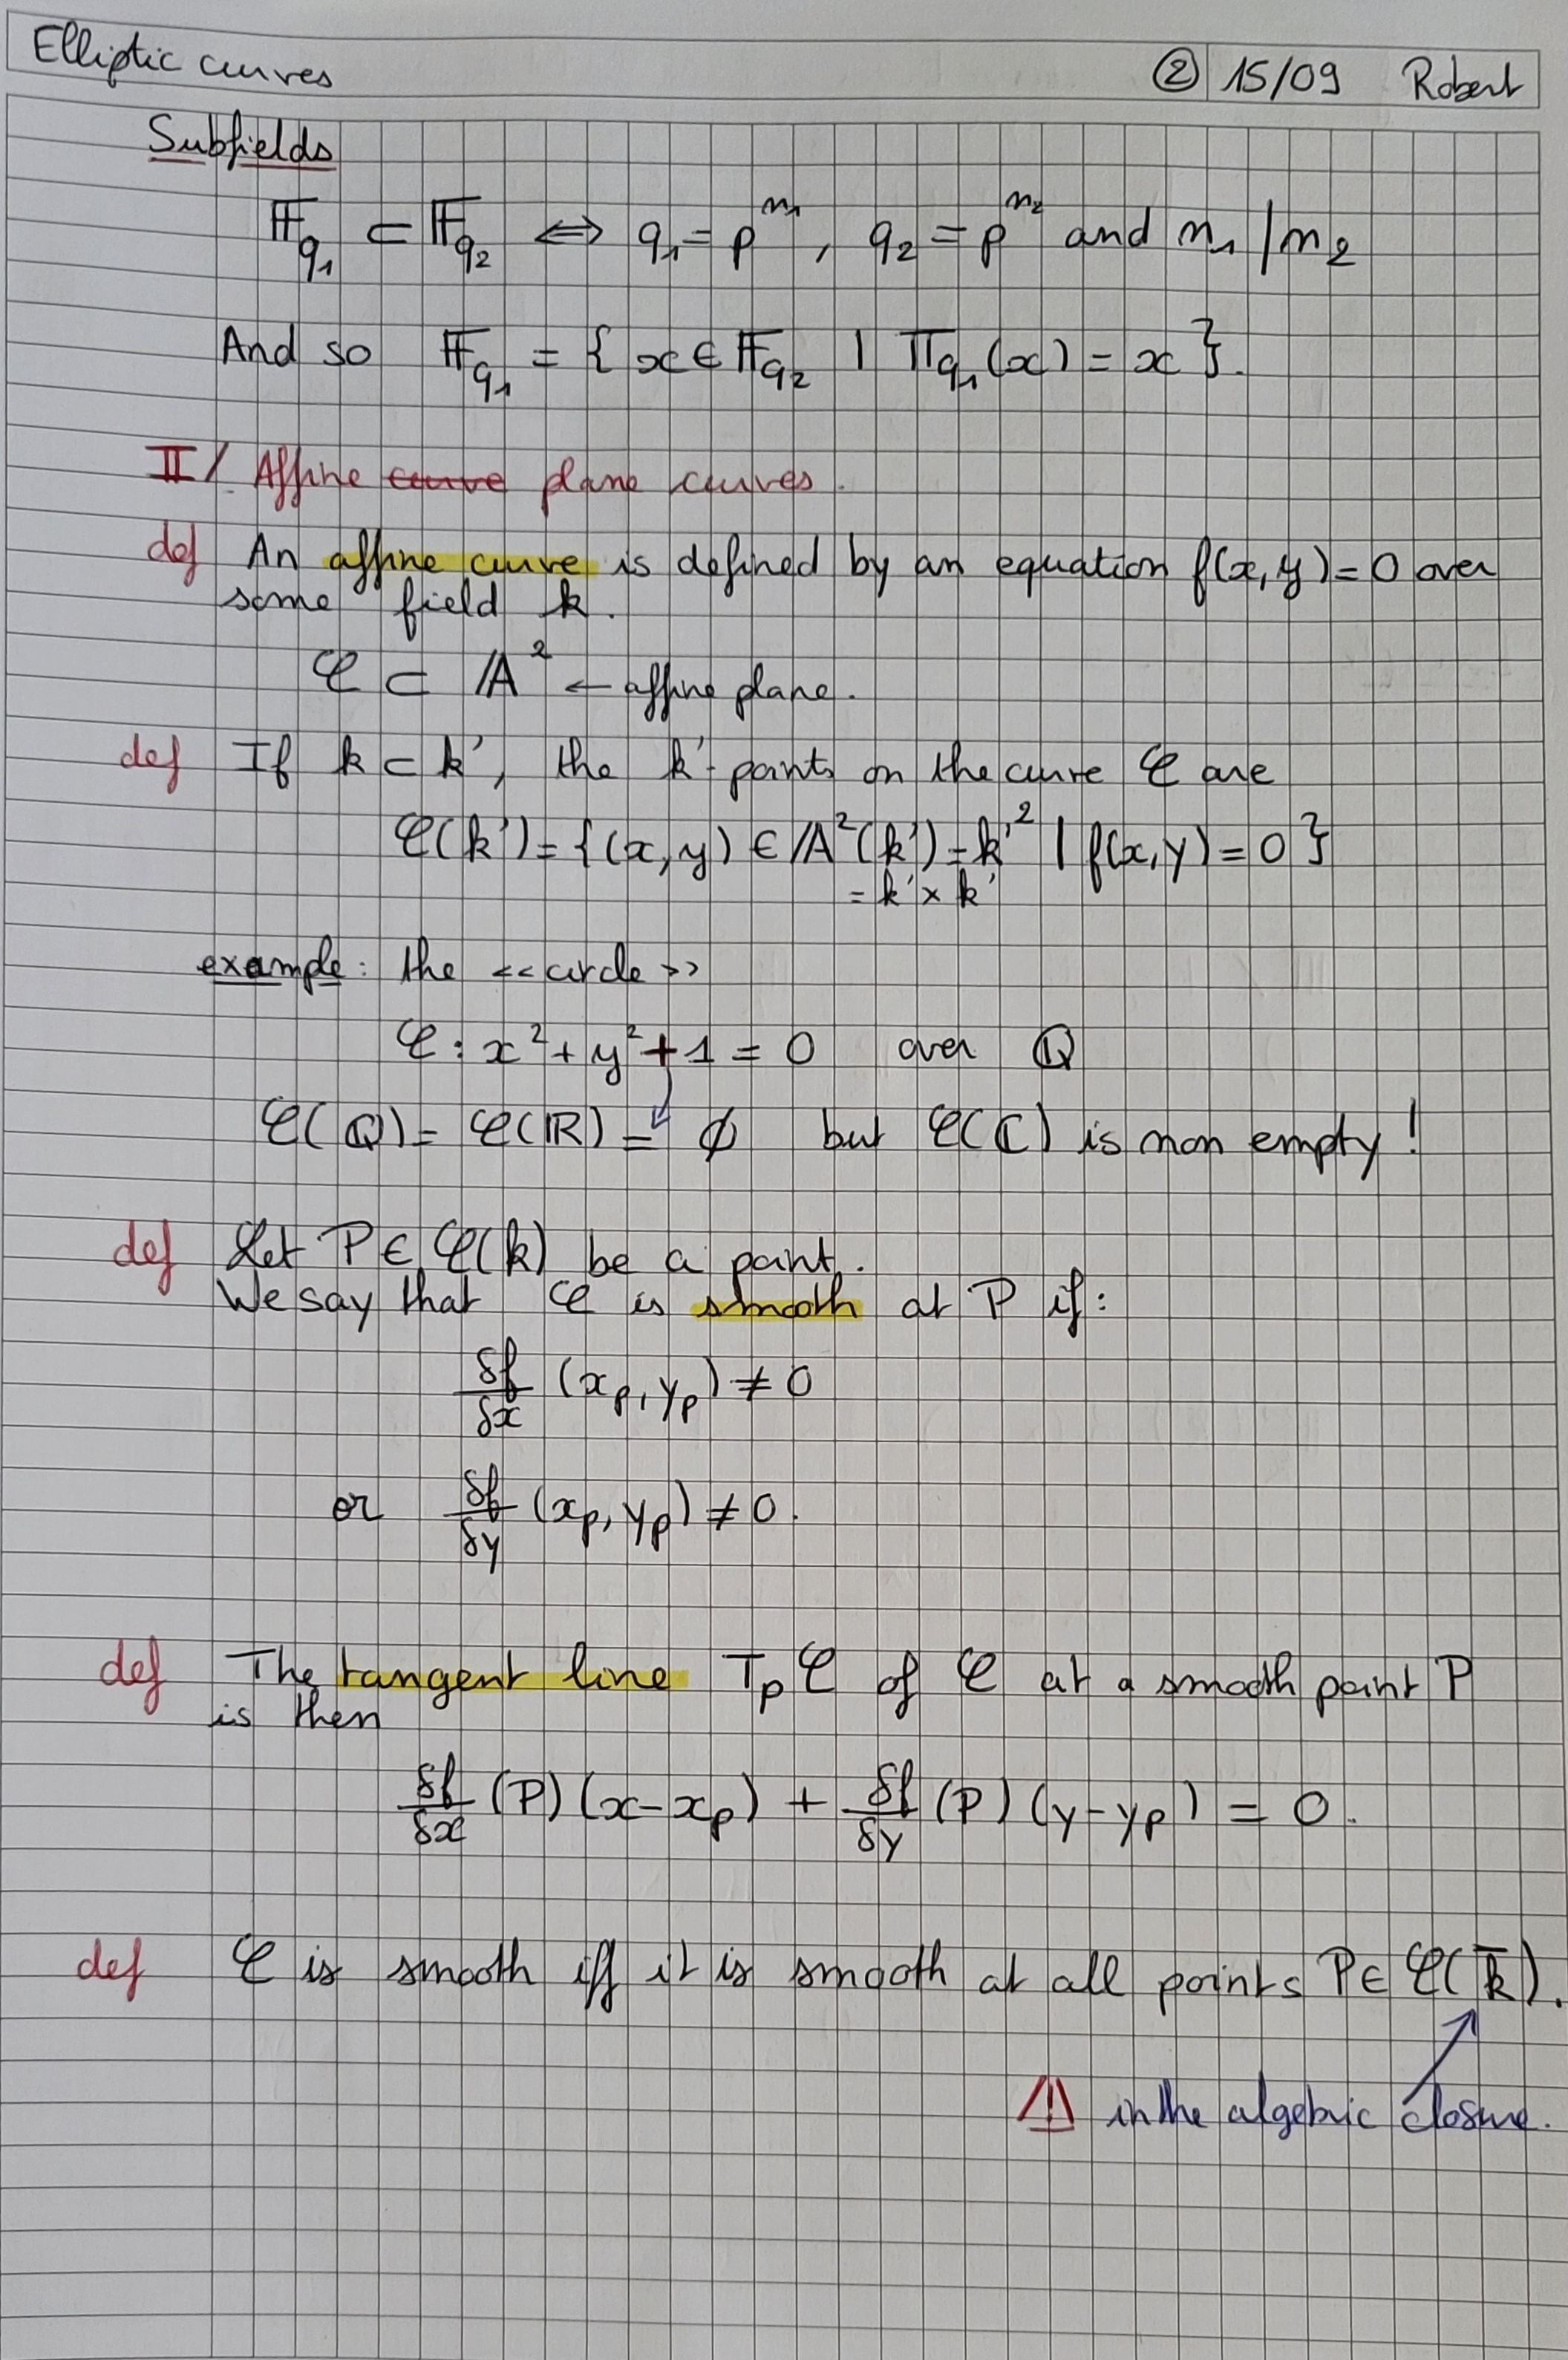 Elliptic curves ② 15/09 Robert
Subfields
𝔽_{q₁} ⊂ 𝔽_{q₂} ⟺ q₁ = p^{n₁}, q₂ = p^{n₂} and n₁ | n₂
And so 𝔽_{q₁} = { x ∈ 𝔽_{q₂} | π_{q₁}(x) = x }.
II/ Affine ~~curve~~ plane curves.
def An affine curve is defined by an equation f(x,y)=0 over
some field k.
𝒞 ⊂ 𝔸² ← affine plane.
def If k ⊂ k', the k'-points on the curve 𝒞 are
𝒞(k') = {(x,y) ∈ 𝔸²(k') = k'² | f(x,y) = 0 }
= k' × k'
example: the << circle >>
𝒞 : x² + y² + 1 = 0 over ℚ
𝒞(ℚ) = 𝒞(ℝ) = ∅ but 𝒞(ℂ) is non empty !
def Let P ∈ 𝒞(k) be a point.
We say that 𝒞 is smooth at P if :
δf/δx (x_P, y_P) ≠ 0
or δf/δy (x_P, y_P) ≠ 0.
def The tangent line T_P 𝒞 of 𝒞 at a smooth point P
is then
δf/δx (P) (x - x_P) + δf/δy (P) (y - y_P) = 0.
def 𝒞 is smooth iff it is smooth at all points P ∈ 𝒞(k̄).
⚠ in the algebric closure.